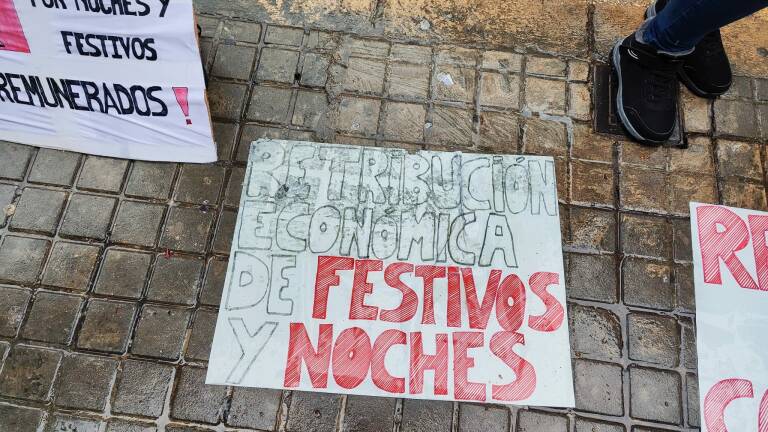 POR NOCHES Y
FESTIVOS
REMUNERADOS!
RETRIBUCIÓN
ECONÓMICA
DE FESTIVOS
Y NOCHES
RE
CO